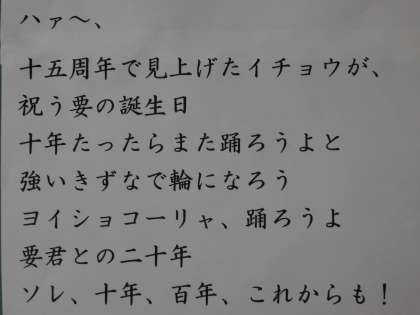 ハァ～、
十五周年で見上げたイチョウが、
祝う要の誕生日
十年たったらまた踊ろうよと
強いきずなで輪になろう
ヨイショコーリャ、踊ろうよ
要君との二十年
ソレ、十年、百年、これからも！